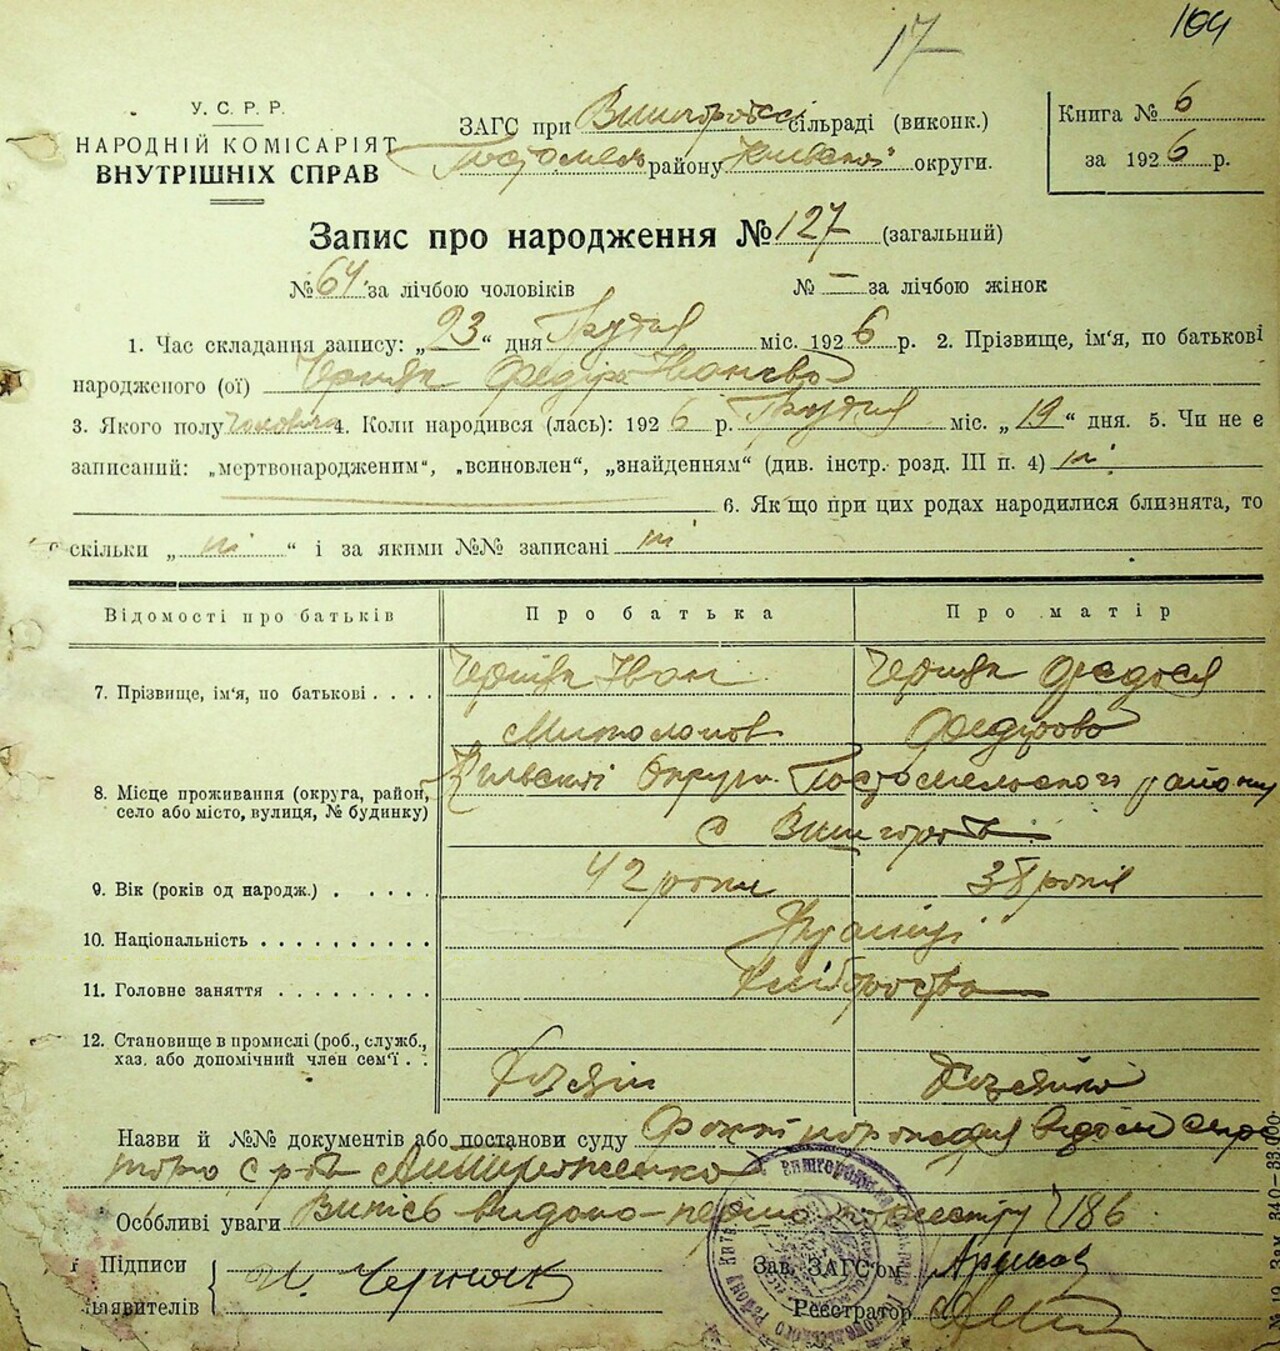 17 104
У. С. Р. Р.
НАРОДНІЙ КОМІСАРІЯТ
ВНУТРІШНІХ СПРАВ
ЗАГС при сільраді (виконк.)
району Київської округи.
Книга № 6
за 1926 р.
Запис про народження № 127 (загальний)
№ 64 за лічбою чоловіків № — за лічбою жінок
1. Час складання запису: „23“ дня Грудня міс. 1926 р. 2. Прізвище, ім‘я, по батькові
народженого (ої) Черняк Федір Іванов
3. Якого полу чоловіча 4. Коли народився (лась): 1926 р. Грудня міс. „19“ дня. 5. Чи не є
записаний: „мертвонародженим“, „всиновлен“, „знайденням“ (див. інстр. розд. III п. 4) ні
6. Як що при цих родах народилися близнята, то
скільки „ні“ і за якими №№ записані ні
Відомості про батьків Про батька Про матір
7. Прізвище, ім‘я, по батькові . . . . Черняк Іван Черняк Федося
Федорова
8. Місце проживання (округа, район, Київської Округи Гостомельского району
село або місто, вулиця, № будинку) с Вишгород
9. Вік (років од народж.) . . . . . 42 роки 38 років
10. Національність . . . . . . . . . . Українці
11. Головне заняття . . . . . . . . . Хліборобство
12. Становище в промислі (роб., служб.,
хаз. або допомічний член сем‘ї . . Хозяїн Хозяйка
Назви й №№ документів або постанови суду Факт народження
Особливі уваги Випись видано 186
Підписи
заявителів И. Черняк
Зав. ЗАГС'ом
Реєстратор